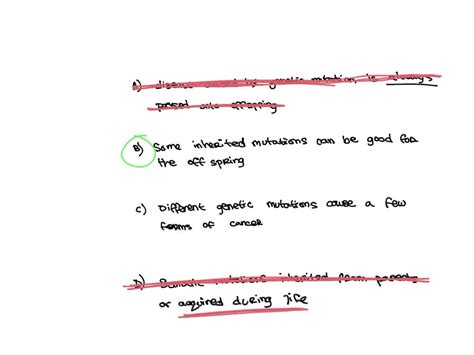 A) disease caused by genetic mutation is always
passed onto offspring
B) Some inherited mutations can be good for
the off spring
C) Different genetic mutations cause a few
forms of cancer
D) Somatic mutations inherited from parents
or acquired during life